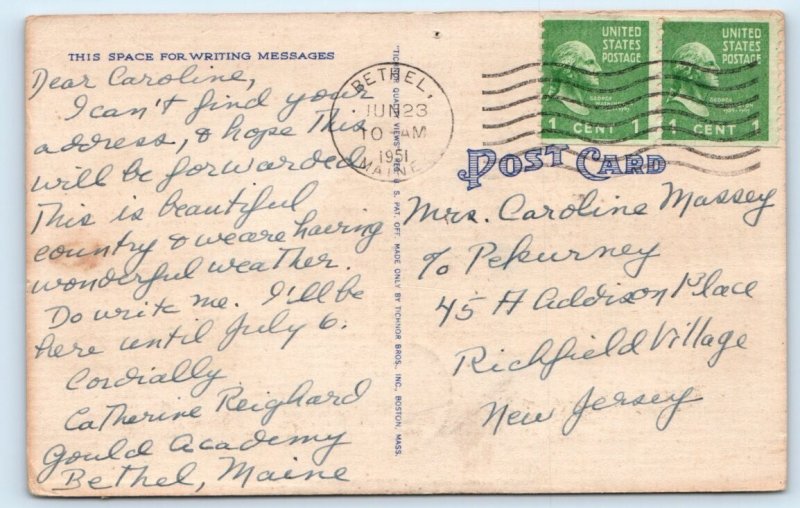 THIS SPACE FOR WRITING MESSAGES
Dear Caroline,
I can't find your
address, & hope this
will be forwarded.
This is beautiful
country & we are having
wonderful weather.
Do write me. I'll be
here until July 6.
Cordially
Catherine Reighard
Gould Academy
Bethel, Maine
"TICHNOR QUALITY VIEWS" REG. U. S. PAT. OFF. MADE ONLY BY TICHNOR BROS. INC., BOSTON, MASS.
BETHEL,
JUN 23
10 AM
1951
MAINE
UNITED
STATES
POSTAGE
GEORGE
1 CENT 1
UNITED
STATES
POSTAGE
GEORGE
WASHINGTON
1 CENT 1
POST CARD
Mrs. Caroline Massey
℅ Pekurney
45 A Addison Place
Richfield Village
New Jersey